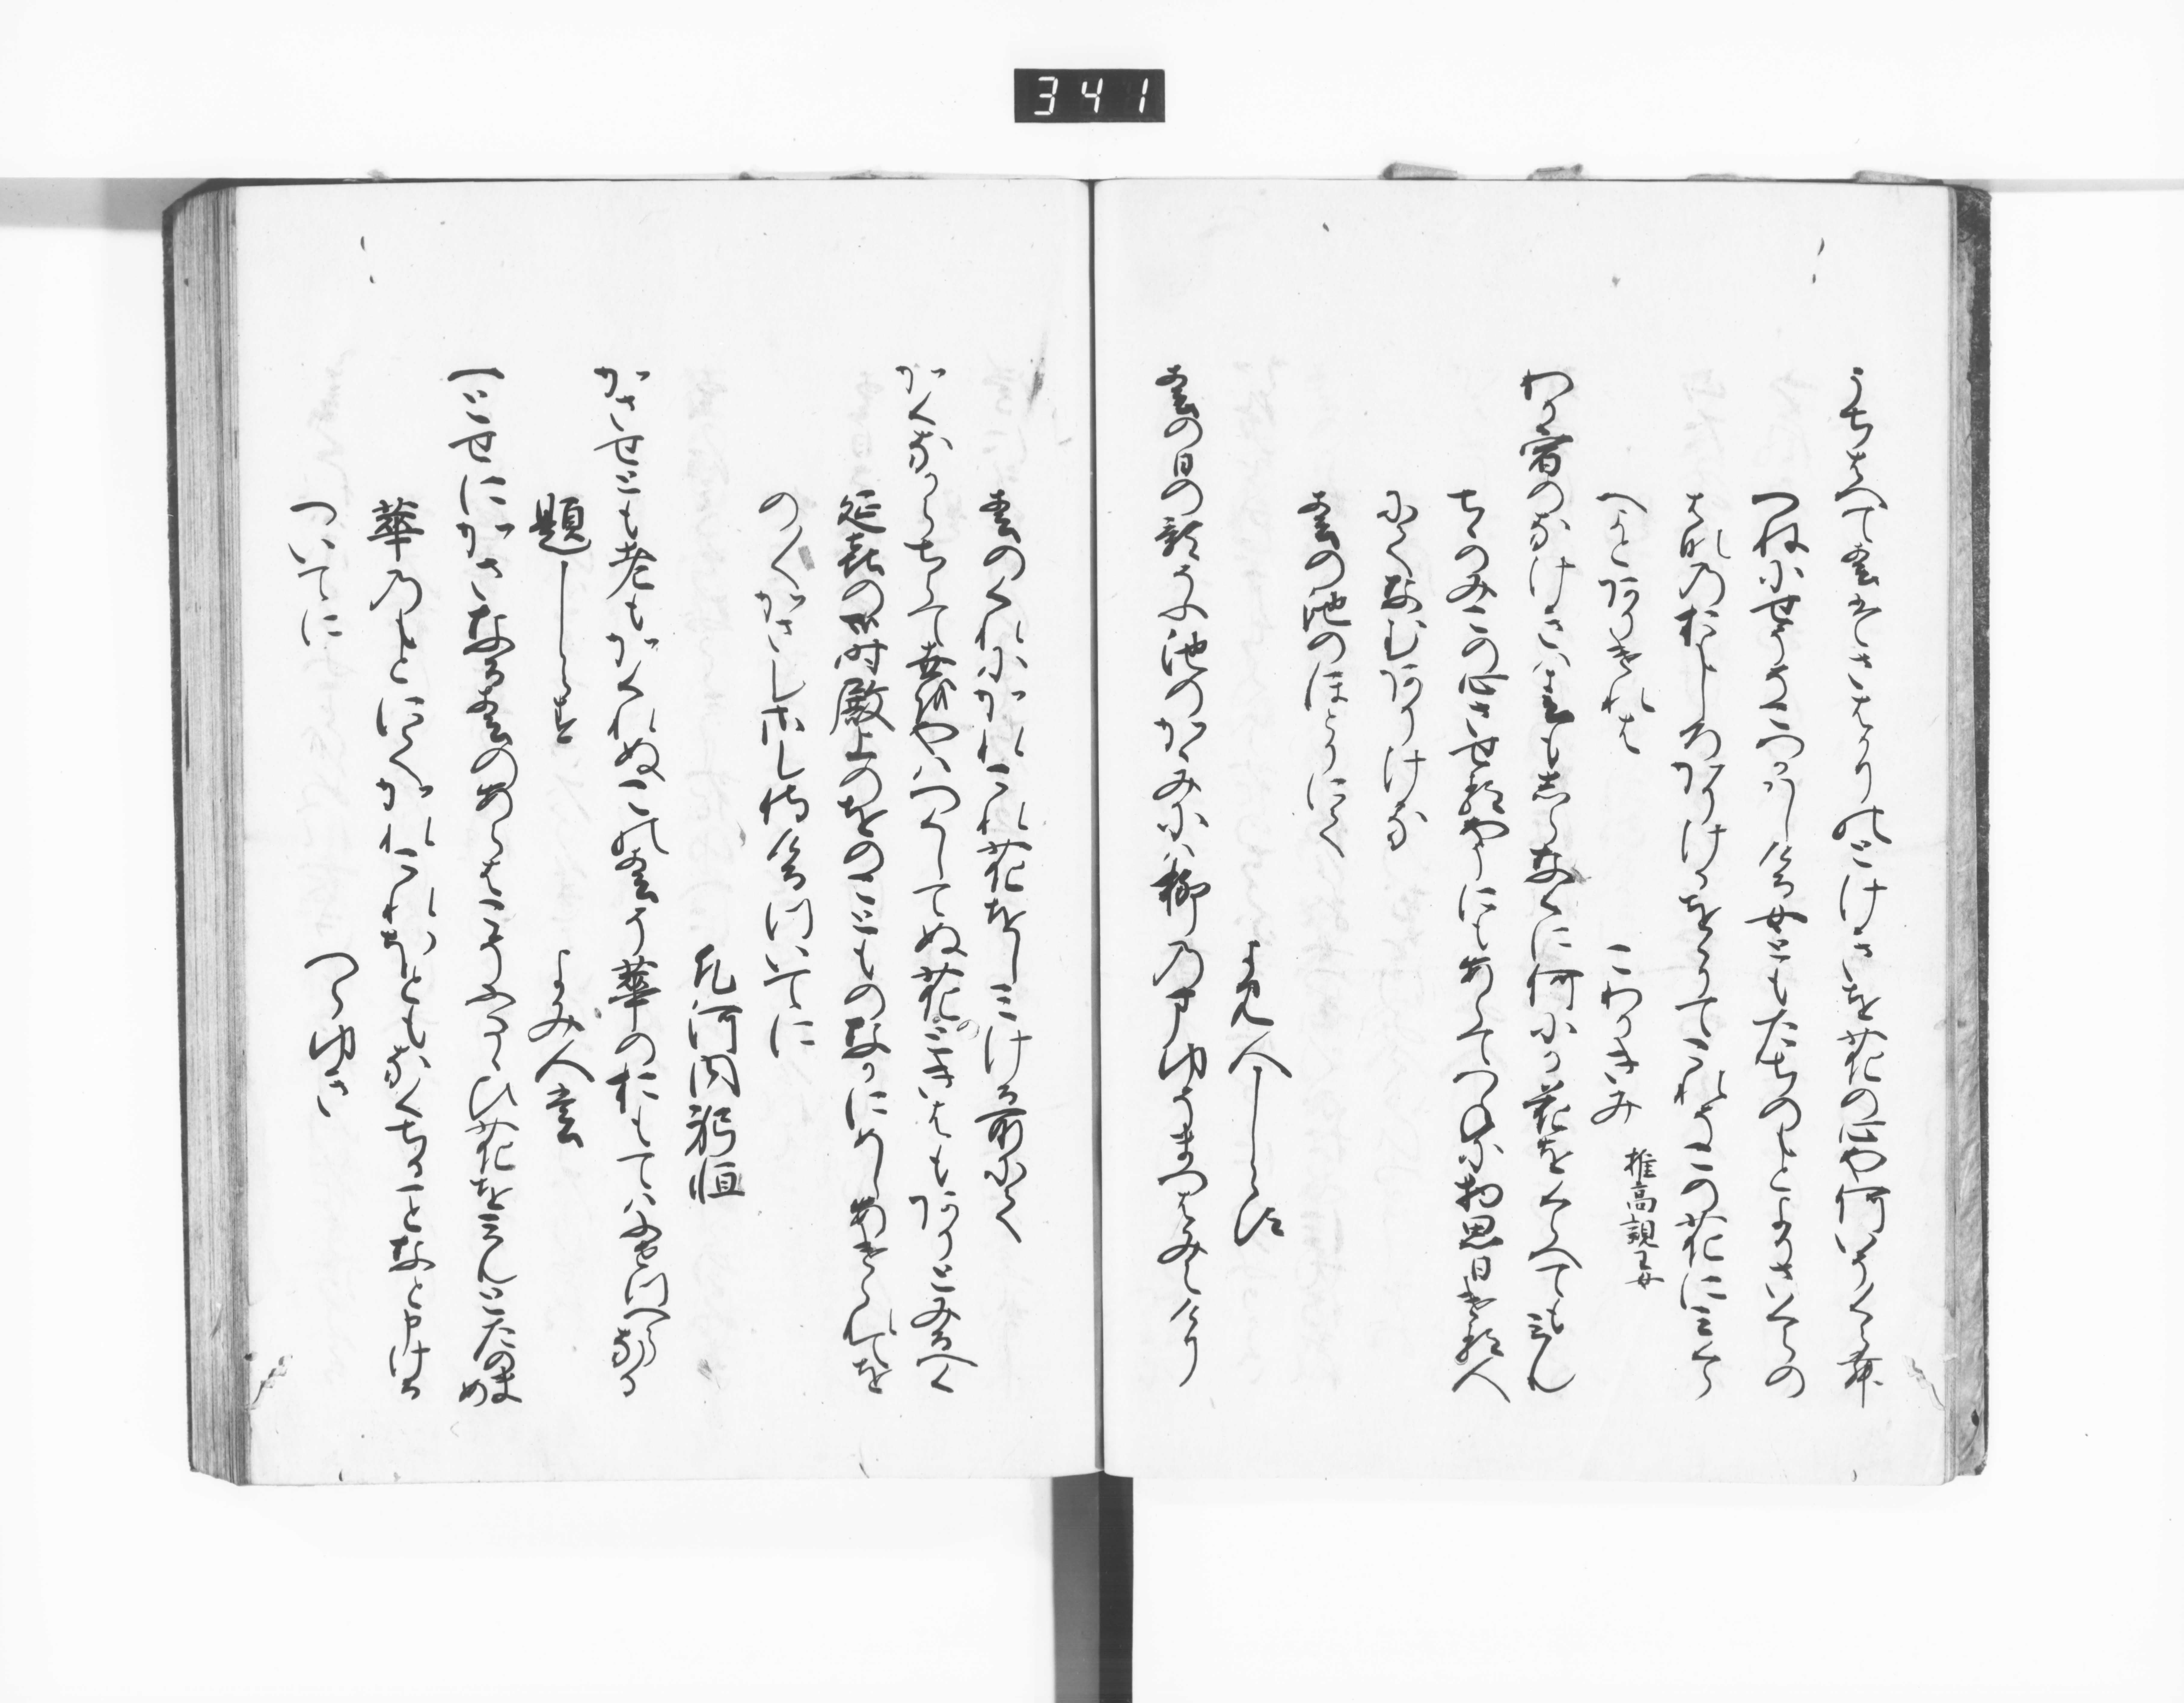 341
うちはへて春はさはかりのとけきを花の心や何いそくらむ
つねにせうそこつかはしける女ともたちのもとよりさくらの
はなのおもしろかりけるをゝりてこれそこの花に見くら
へよとありけれは
こわかきみ 推高親王女
わか宿のなけきは春もしらなくに何にか花をくらへても見ん
ちゝのみこの心させるやうにもあらてつねに物思ひける人
にてなむありけな
春の池のほとりにて
よみ人しらす
春の日の影そふ池のかゝみには柳のまゆそまつはみえける
春のくれにかれこれ花をしみける所にて
かくなからちらて世をやはつくしてぬ花のときはもありとみるへく
延喜の御時殿上のをのことものなかにめしあけられてを
のゝゝかさしさし侍けるついてに
凡河内躬恒
かさせとも老もかくれぬこの春そ華のおもてはふせつへらなる
題しらす よみ人ゝゝ
一とせにかさなる春のあらはこそふたゝひ花を見んとたのまめ
華のもとにてかれこれほともなくちることなと申ける
ついてに つらゆき